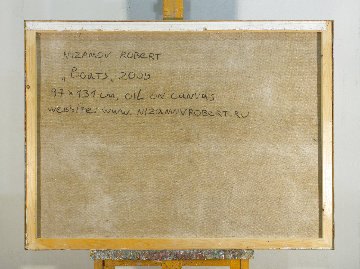 NIZAMOV ROBERT
„Boats„ 2009
97 x 131 cm, OIL ON CANVAS
website: www. NIZAMOVROBERT.RU